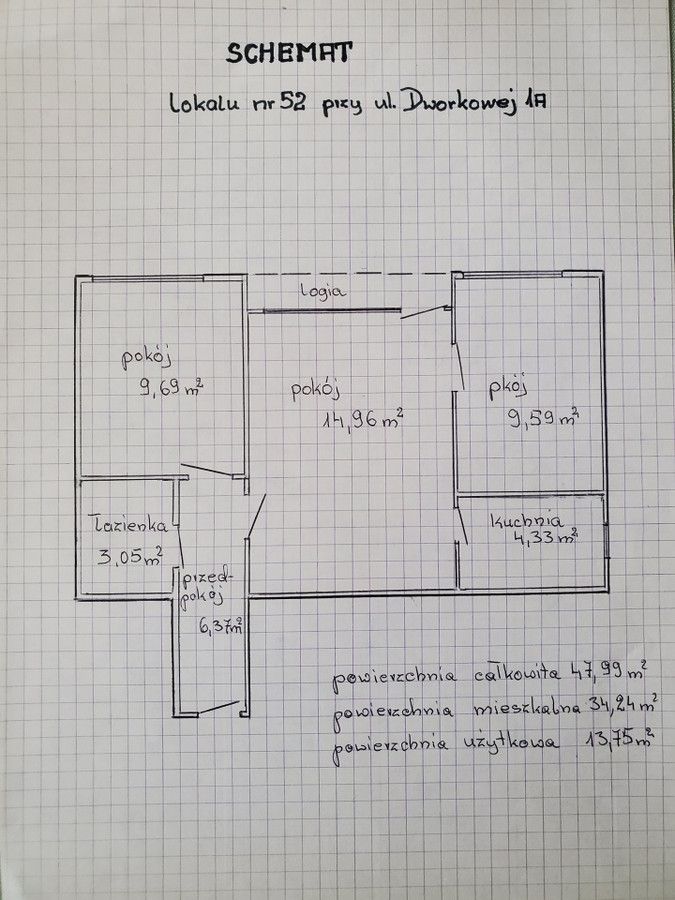 SCHEMAT
Lokalu nr 52 przy ul. Dworkowej 1A
logia
pokój
9,69 m²
pokój
14,96 m²
pkój
9,59 m²
łazienka
3,05 m²
kuchnia
4,33 m²
przed-
pokój
6,37 m²
powierzchnia całkowita 47,99 m²
powierzchnia mieszkalna 34,24 m²
powierzchnia użytkowa 13,75 m²